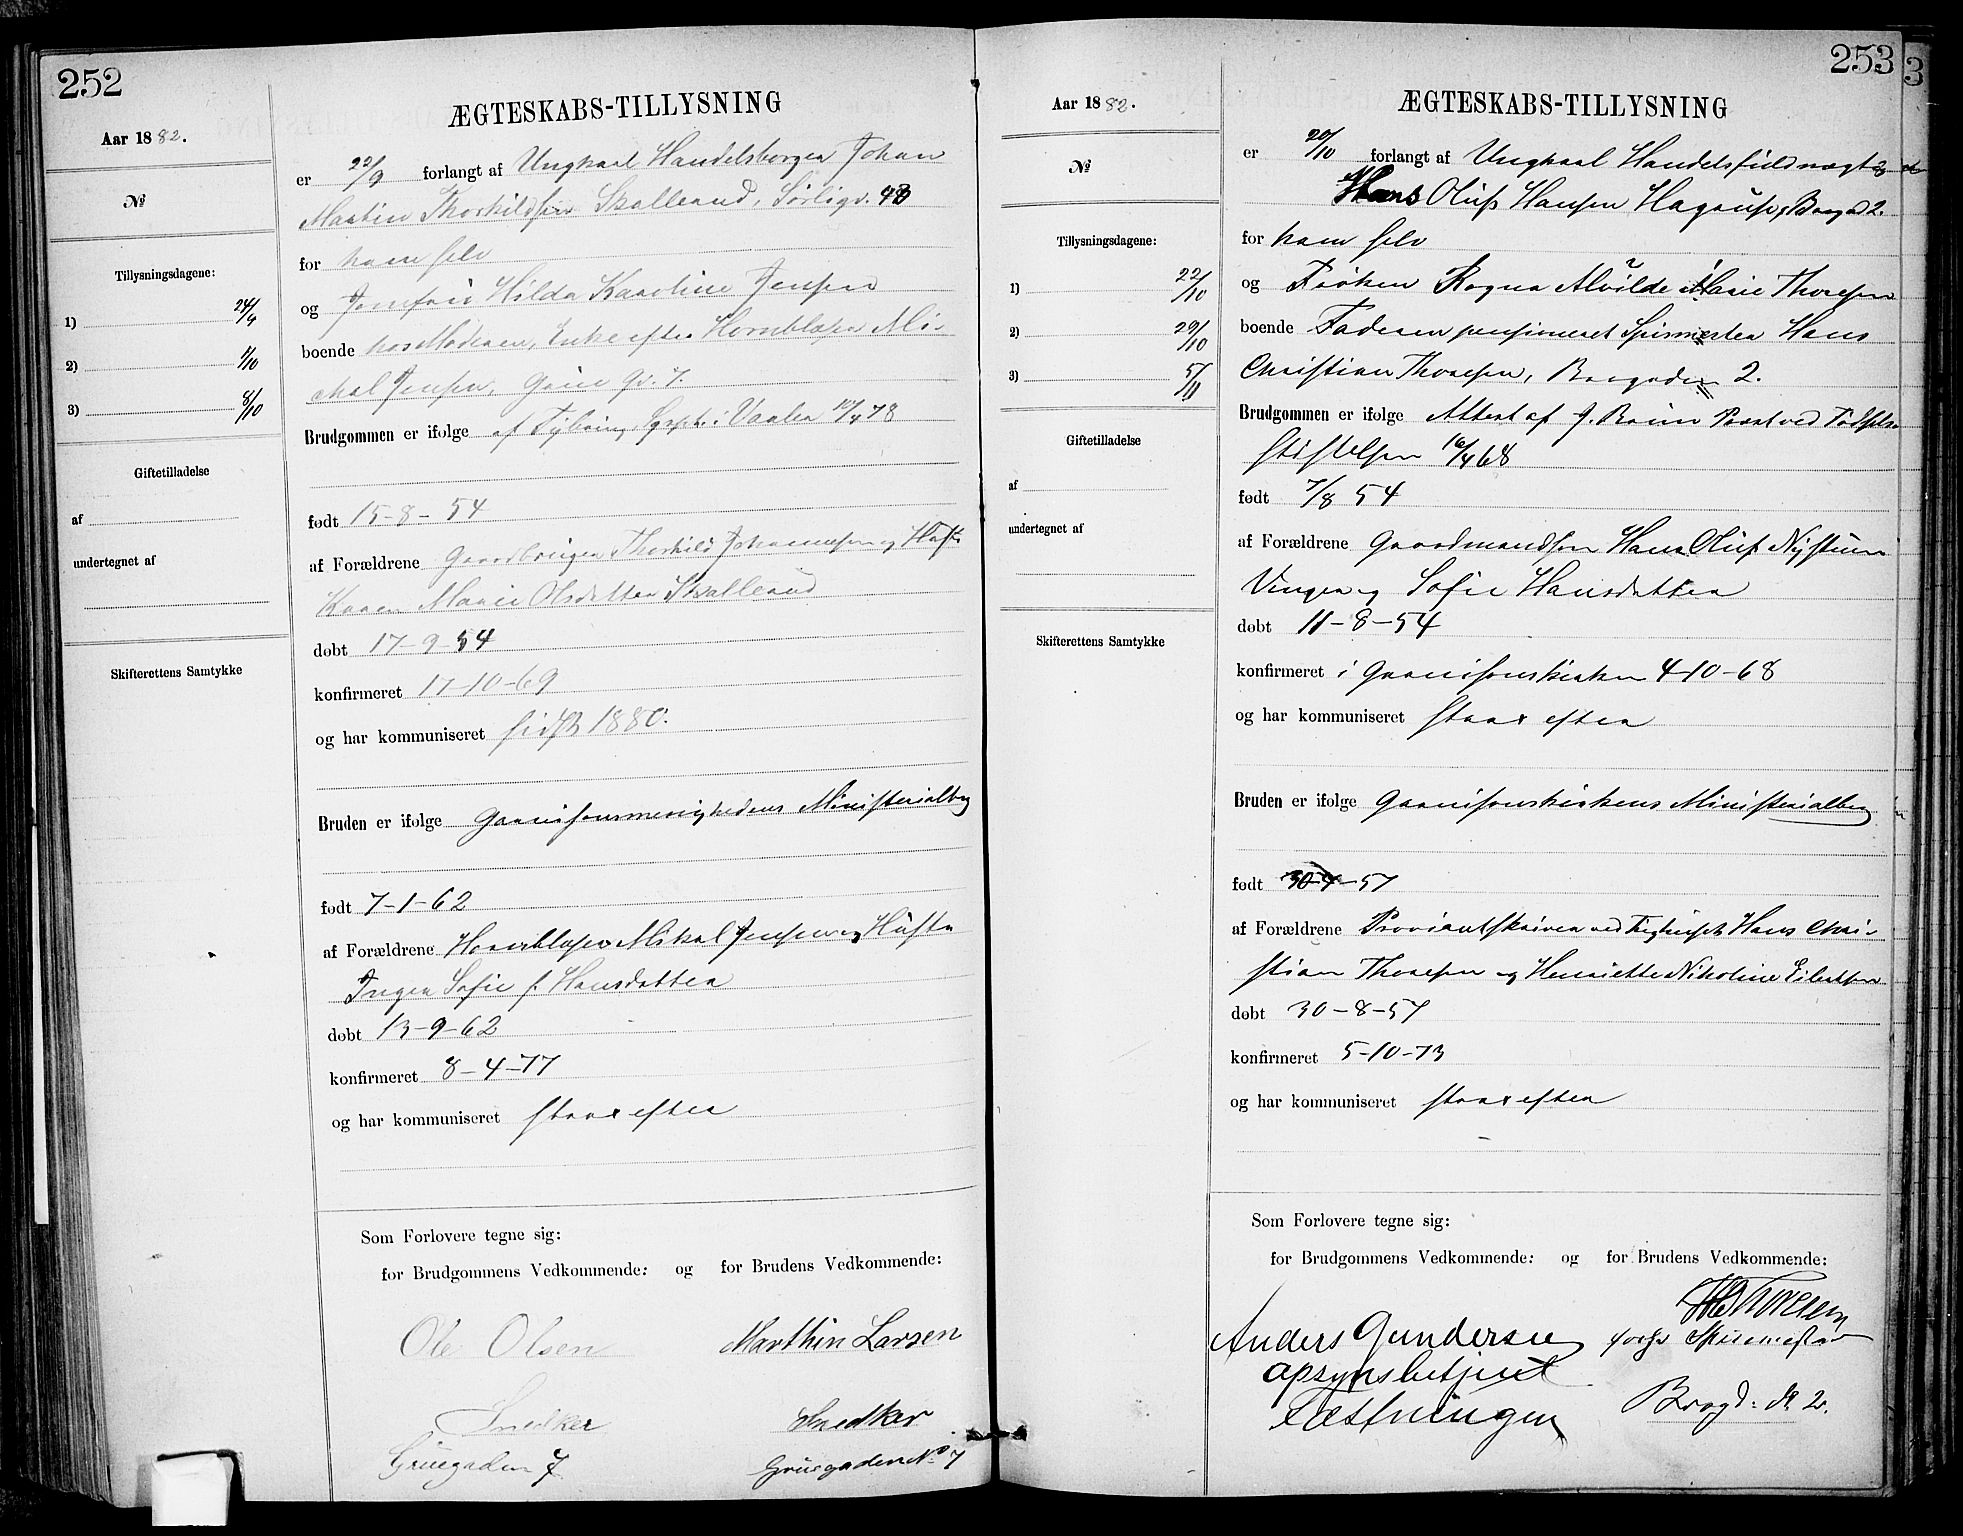 252
Aar 1882.
№
Tillysningsdagene:
1) 24/9
2) 1/10
3) 8/10
Giftetilladelse
af
undertegnet af
Skifterettens Samtykke
ÆGTESKABS-TILLYSNING
er 22/9 forlangt af Ungkarl Handelsborger Johan
Martin Thorkildsen Skallerud, Sørligv. 48
for ham selv
og Jomfru Hilda Karoline Jensen
boende hos Moderen, Enke efter Hornblæser Mi-
chal Jensen, Grueg. 7.
Brudgommen er ifølge af Sgpr. i Vaaler 10/4 78
født 15-8-54
af Forældrene Gaardbruger Thorkild Johannesen og Hustr
Karen Marie Olsdatter Skallerud
døbt 17-9-54
konfirmeret 17-10-69
og har kommuniseret sidst 1880.
Bruden er ifølge Garnisonsmenighedens Ministerialbog
født 7-1-62
af Forældrene Hornblæser Mikal Jensen og Hustru
Inger Sofie f. Hansdatter
døbt 13-9-62
konfirmeret 8-4-77
og har kommuniseret strax efter
Som Forlovere tegne sig:
for Brudgommens Vedkommende: og for Brudens Vedkommende:
Ole Olsen Marthin Larsen
Snedker Snedker
Gruegaden 7 Gruegaden No 7
253
Aar 1882.
№
Tillysningsdagene:
1) 22/10
2) 29/10
3) 5/11
Giftetilladelse
af
undertegnet af
Skifterettens Samtykke
ÆGTESKABS-TILLYSNING
er 20/10 forlangt af Ungkarl Handelsfuldmægtig
Hans Oluf Hansen Hagrup, Brogd 2.
for ham selv
og Frøken Ragna Alvilde Marie Thoresen
boende Faderen pensioneret Spisemester Hans
Christian Thoresen, Brogaden 2.
Brudgommen er ifølge Attest af J. Bruun Præst ved Fødsels
stiftelsen 16/4 68
født 7/8 54
af Forældrene Gaardmandssøn Hans Oluf Nystuen
Vinger og Sofie Hansdatter
døbt 11-8-54
konfirmeret i Garnisonskirken 4-10-68
og har kommuniseret strax efter
Bruden er ifølge Garnisonskirkens Ministerialbog
født 30-4-57
af Forældrene Proviantskriver ved Hans Chri-
stian Thoresen og Henriette Nikoline Eilertsen
døbt 30-8-57
konfirmeret 5-10-73
og har kommuniseret strax efter
Som Forlovere tegne sig:
for Brudgommens Vedkommende: og for Brudens Vedkommende:
Anders Gundersen Thoresen
opsynsbetjent Spisemester
Fæstningen Brogd: № 2.